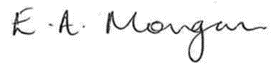 E. A. Morgan